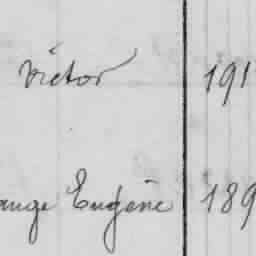 Victor 191
ange Eugène 189